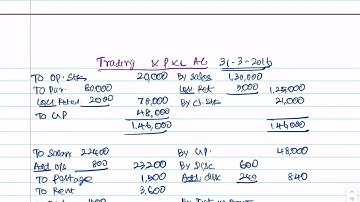 Trading & P&L A/c 31-3-2016
To Op. Stk 20,000 By Sales 1,30,000
To Pur. 80,000 Less Ret 5,000 1,25,000
Less Return 2000 78,000 By Cl. Stk 21,000
To GP 48,000
1,46,000 1,46,000
To Salary 22400 By GP. 48,000
Add o/s 800 23,200 By Disc 600
To Postage 1,500 Add: disc 240 840
To Rent 3,600